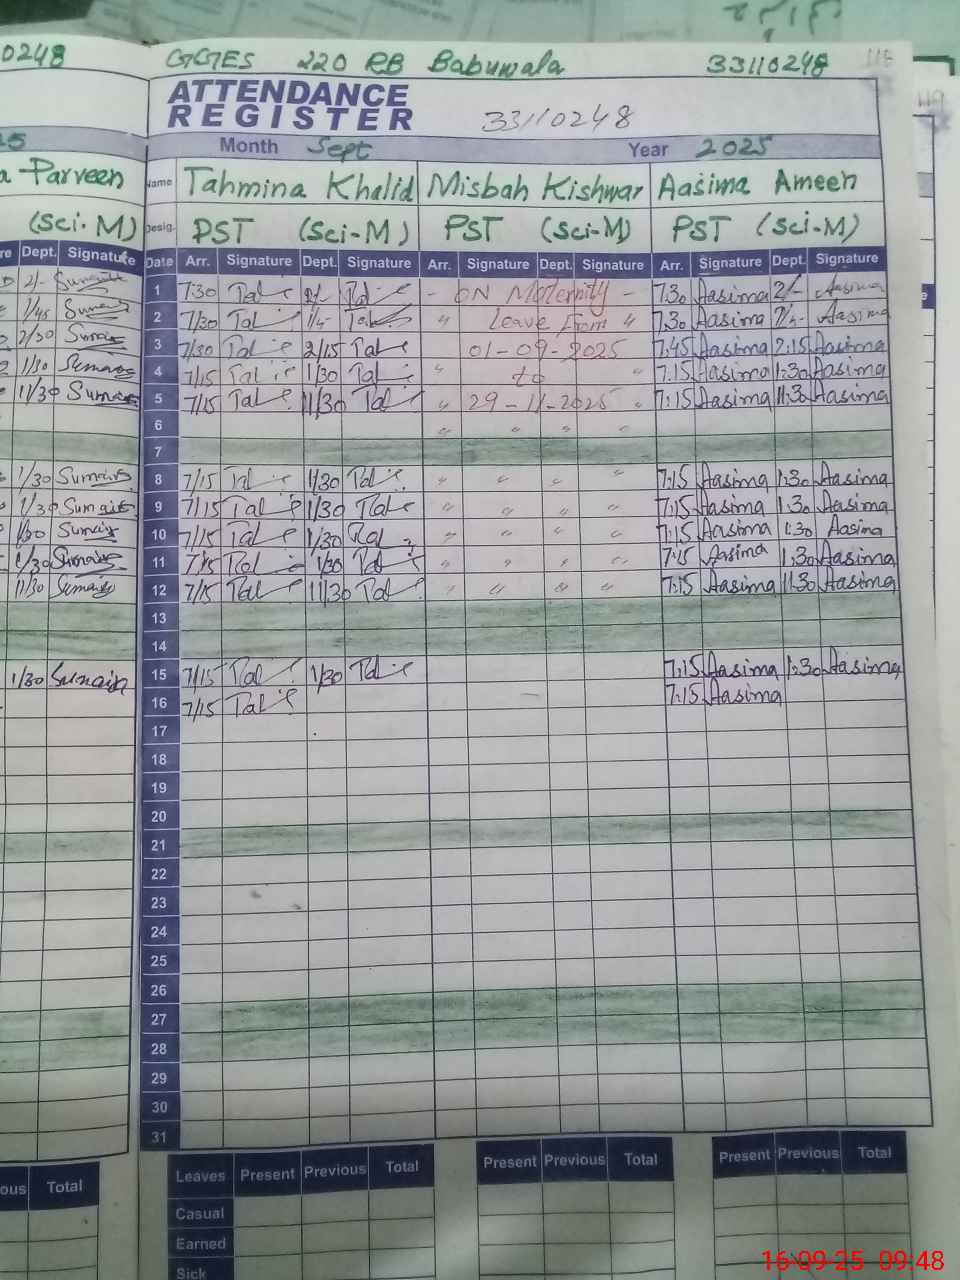 0248 GGES 220 RB Babuwala 33110248 118
ATTENDANCE
REGISTER 33110248
Month Sept Year 2025
Parveen Name Tahmina Khalid Misbah Kishwar Aasima Ameen
(Sci. M) Desig. PST (Sci-M) PST (Sci-M) PST (Sci-M)
Dept. Signature Date Arr. Signature Dept. Signature Arr. Signature Dept. Signature Arr. Signature Dept. Signature
2/- 1 7:30 2/- - ON Maternity - 7:30 Aasima 2/- Aasima
1/45 2 7/30 " Leave From " 7:30 Aasima Aasima
2/30 3 7/30 2/15 01-09-2025 7:45 Aasima 2:15 Aasima
1/30 4 7/15 1/30 " to " 7:15 Aasima 1:30 Aasima
11/30 5 7/15 11/30 " 29-11-2025 " 7:15 Aasima 11:30 Aasima
6 " " " "
7
1/30 8 7/15 1/30 " " " " 7:15 Aasima 1:30 Aasima
1/30 9 7/15 1/30 " " " " 7:15 Aasima 1:30 Aasima
1/30 10 7/15 1/30 " " " " 7:15 Aasima 1:30 Aasima
1/30 11 7/15 1/30 " " " " 7:15 Aasima 1:30 Aasima
11/30 12 7/15 11/30 " " " " 7:15 Aasima 11:30 Aasima
13
14
1/30 15 7/15 1/30 7:15 Aasima 1:30 Aasima
16 7/15 7:15 Aasima
17
18
19
20
21
22
23
24
25
26
27
28
29
30
31
Total Leaves Present Previous Total Present Previous Total Present Previous Total
Casual
Earned
Sick
16-09-25 09:48